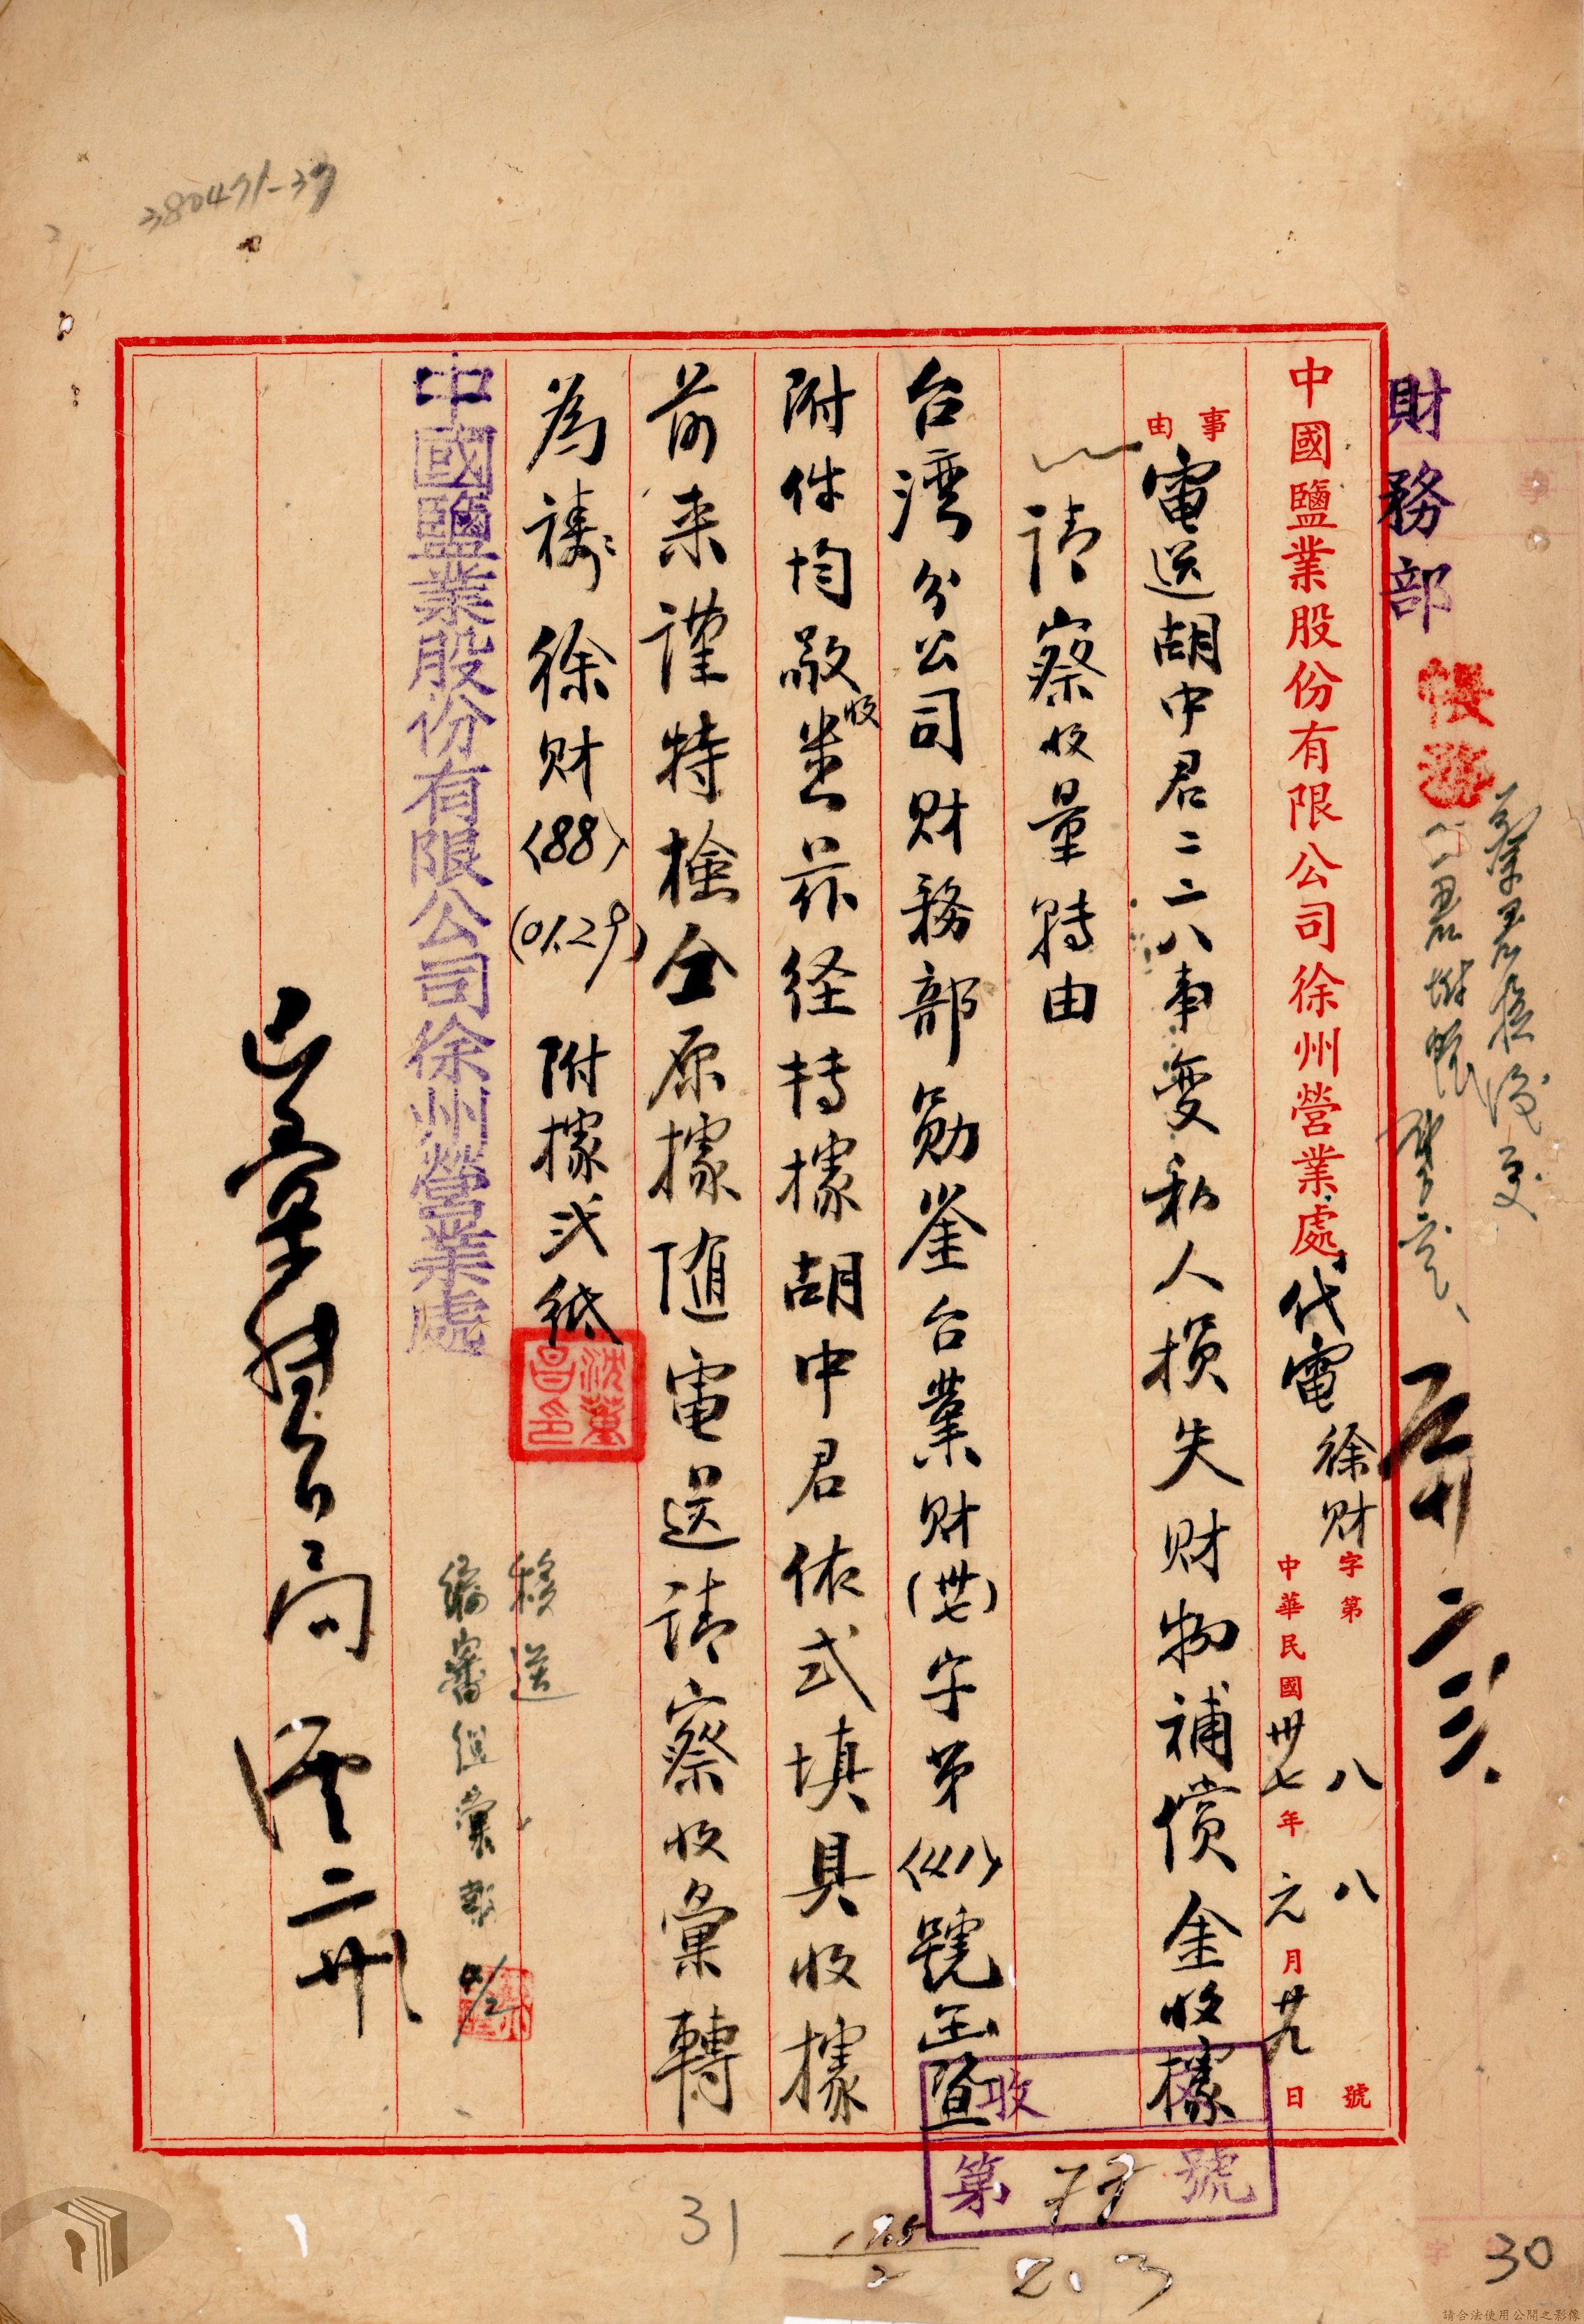 380471-37
財務部
帳務
中國鹽業股份有限公司徐州營業處代電
徐財字第八八號
中華民國卅七年元月廿九日
事由
電送胡中君二二八事变私人損失財物補償金收據
請察收彙轉由
台湾分公司財務部勛鉴台業財(卅七)字第(441)號函暨
附件均敬收悉茲経轉據胡中君依式填具收據
前来謹特檢仝原據随電送請察收彙轉
為禱徐財(88)(01.29)附據弍紙
中國鹽業股份有限公司徐州營業處
移送
編審組彙辦
4/2
收
第77號
31
2.3
30
請合法使用公開之影像